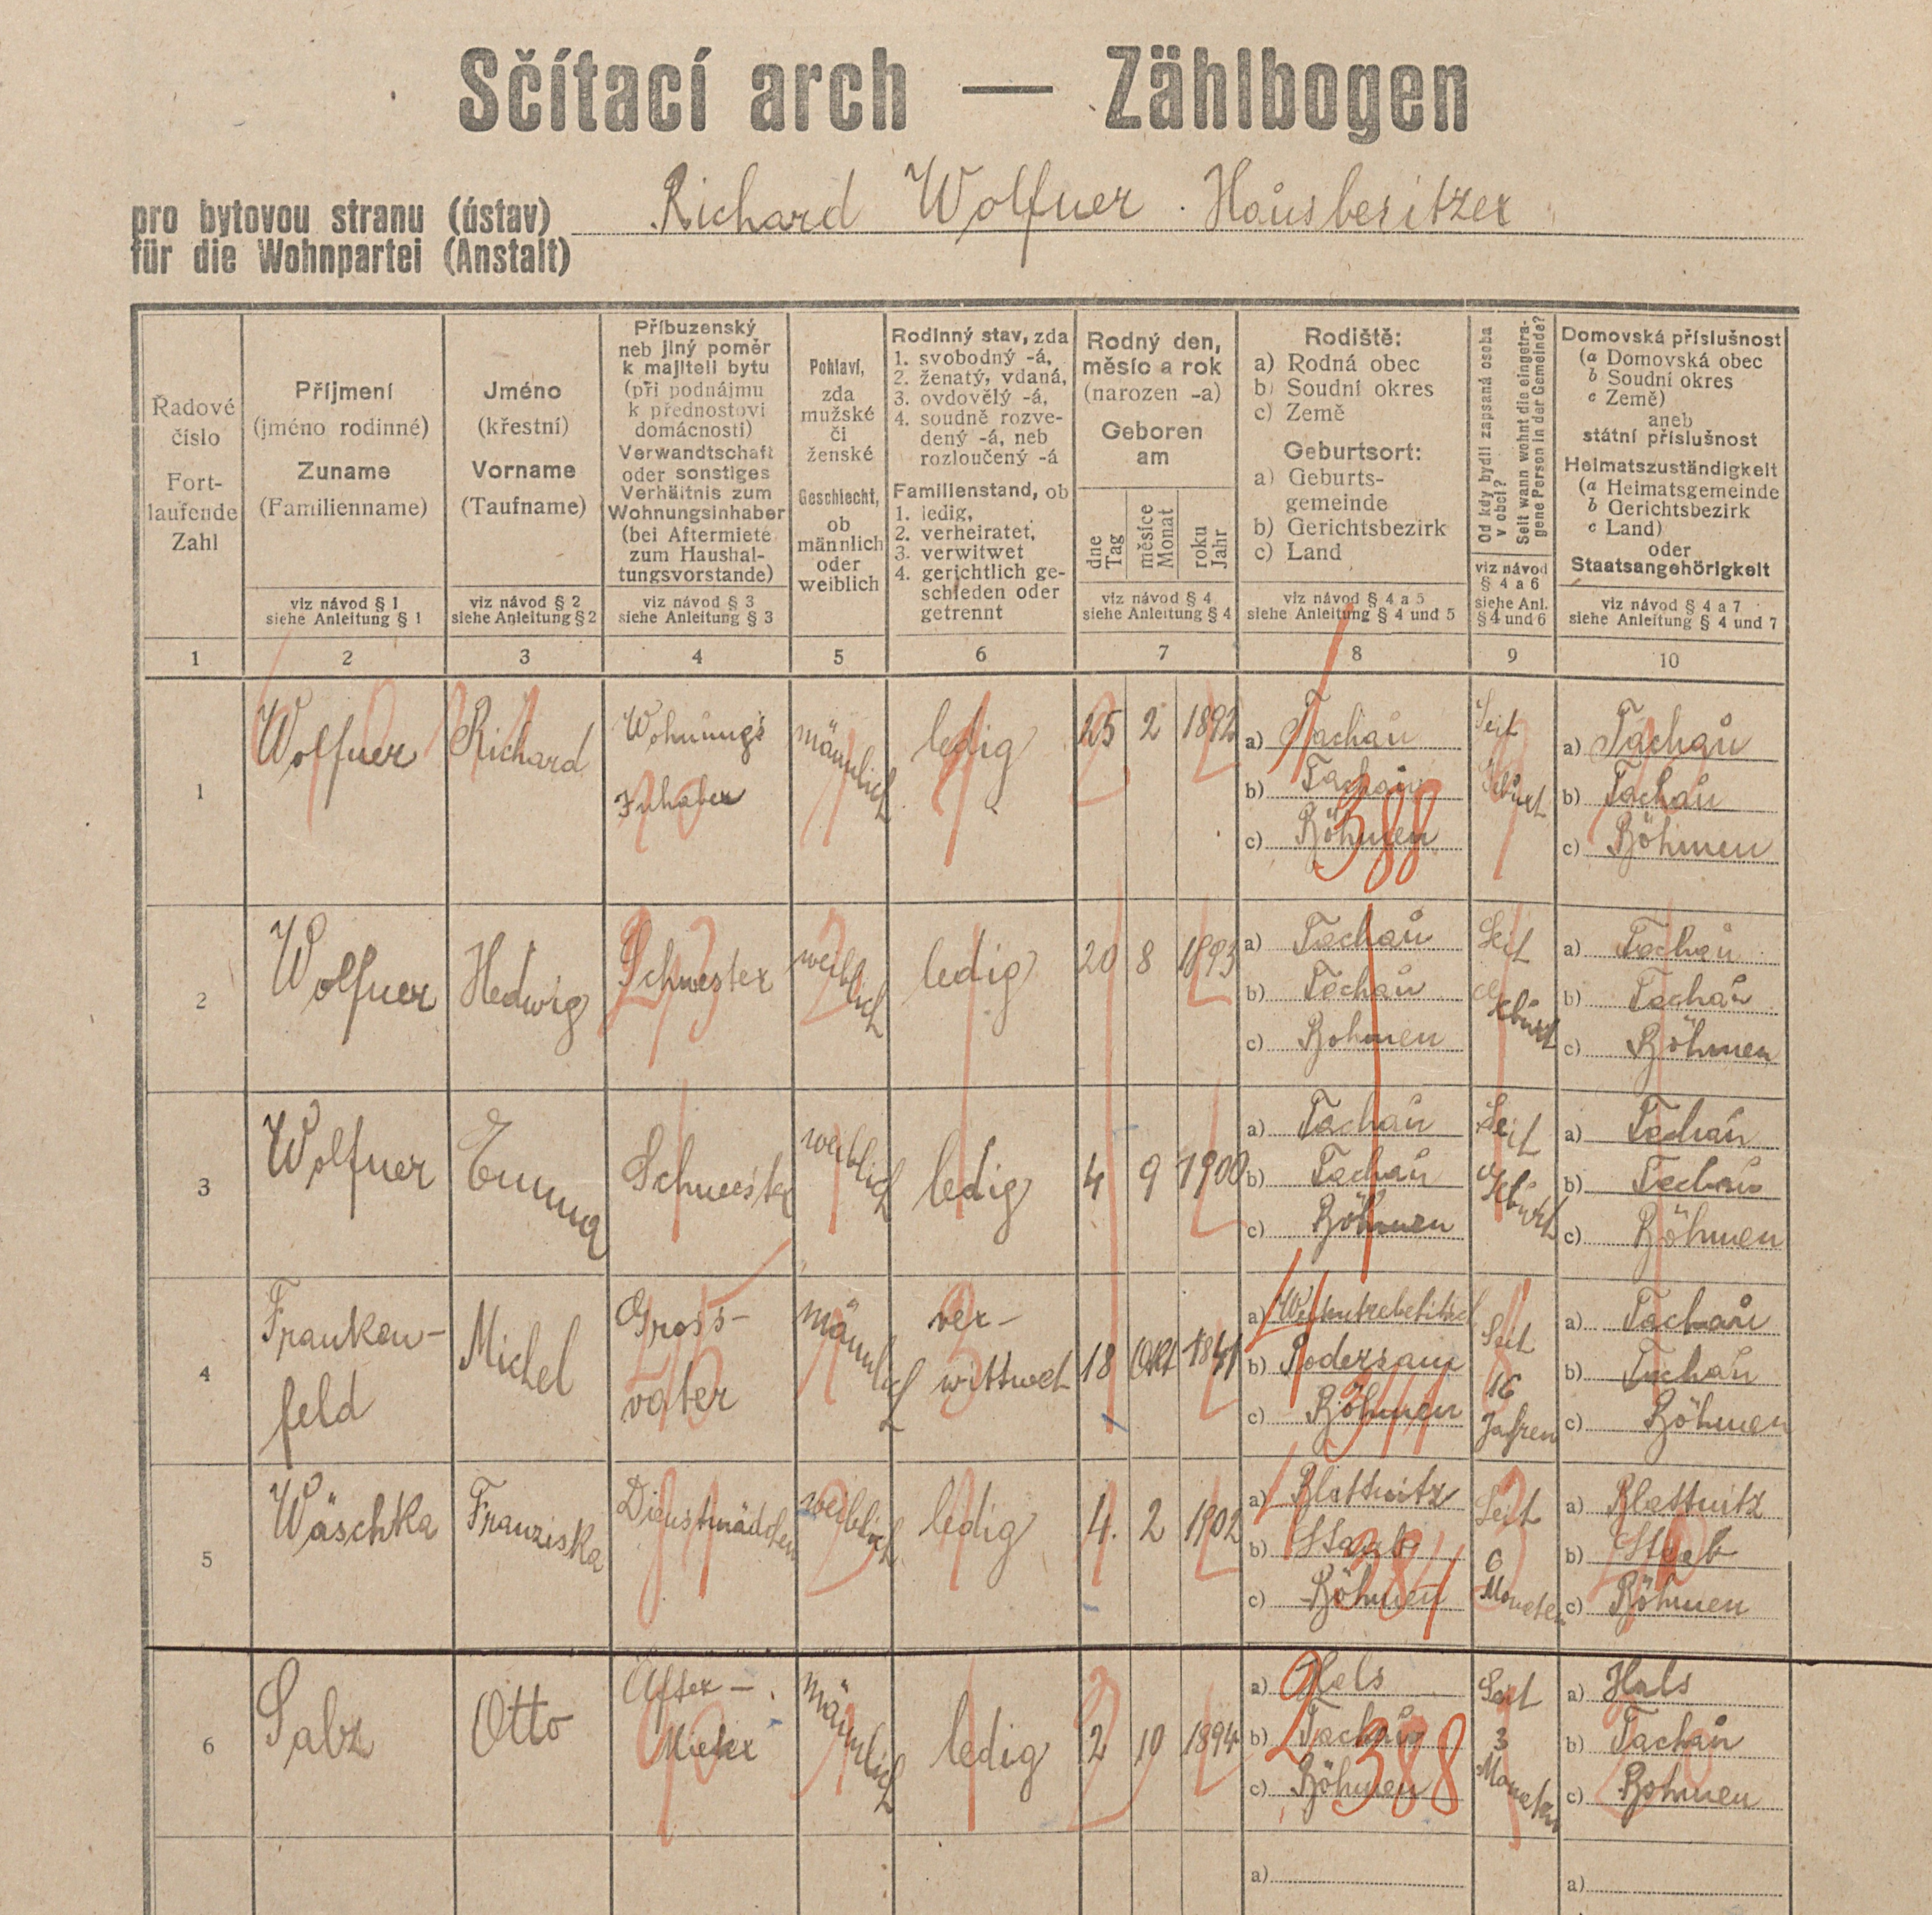 Sčítací arch — Zählbogen
pro bytovou stranu (ústav)
für die Wohnpartei (Anstalt)
Richard Wolfner. Hausbesitzer
Řadové
číslo
Fort-
laufende
Zahl
1
Příjmení
(jméno rodinné)
Zuname
(Familienname)
viz návod § 1
siehe Anleitung § 1
2
Jméno
(křestní)
Vorname
(Taufname)
viz návod § 2
siehe Anleitung § 2
3
Příbuzenský
neb jiný poměr
k majiteli bytu
(při podnájmu
k přednostovi
domácnosti)
Verwandtschaft
oder sonstiges
Verhältnis zum
Wohnungsinhaber
(bei Aftermiete
zum Haushal-
tungsvorstande)
viz návod § 3
siehe Anleitung § 3
4
Pohlaví,
zda
mužské
či
ženské
Geschlecht,
ob
männlich
oder
weiblich
5
Rodinný stav, zda
1. svobodný -á,
2. ženatý, vdaná,
3. ovdovělý -á,
4. soudně rozve-
dený -á, neb
rozloučený -á
Familienstand, ob
1. ledig,
2. verheiratet,
3. verwitwet
4. gerichtlich ge-
schieden oder
getrennt
6
Rodný den,
měsíc a rok
(narozen -a)
Geboren
am
dne
Tag
měsíce
Monat
roku
Jahr
viz návod § 4
siehe Anleitung § 4
7
Rodiště:
a) Rodná obec
b) Soudní okres
c) Země
Geburtsort:
a) Geburts-
gemeinde
b) Gerichtsbezirk
c) Land
viz návod § 4 a 5
siehe Anleitung § 4 und 5
8
Od kdy bydlí zapsaná osoba
v obci?
Seit wann wohnt die eingetra-
gene Person in der Gemeinde?
viz návod
§ 4 a 6
siehe Anl.
§ 4 und 6
9
Domovská příslušnost
(a Domovská obec
b Soudní okres
c Země)
aneb
státní příslušnost
Heimatszuständigkeit
(a Heimatsgemeinde
b Gerichtsbezirk
c Land)
oder
Staatsangehörigkeit
viz návod § 4 a 7
siehe Anleitung § 4 und 7
10
1
Wolfner
Richard
Wohnungs
Inhaber
männlich
ledig
25 2 1892
a) Tachau
b) Tachau
c) Böhmen
388
Seit
Geburt
a) Tachau
b) Tachau
c) Böhmen
2
Wolfner
Hedwig
Schwester
weiblich
ledig
20 8 1893
a) Tachau
b) Tachau
c) Bohmen
Seit
Geburt
a) Tachau
b) Tachau
c) Böhmen
3
Wolfner
Emma
Schwester
weiblich
ledig
4 9 1900
a) Tachau
b) Tachau
c) Böhmen
Seit
Geburt
a) Tachau
b) Tachau
c) Böhmen
4
Franken-
feld
Michel
Gross-
vater
männlich
ver-
wittwet
18 Okt 1841
a)
b) Podersam
c) Böhmen
Seit
16
Jahren
a) Tachau
b) Tachau
c) Böhmen
5
Wäschka
Franziska
Dienstmädchen
weiblich
ledig
4. 2 1902
a) Blattnitz
b) Staab
c) Böhmen
384
Seit
6
Monaten
a) Blattnitz
b) Staab
c) Böhmen
6
Salz
Otto
After-
Mieter
männlich
ledig
2 10 1894
a) Hals
b) Tachau
c) Böhmen
2 388
Seit
3
Monaten
a) Hals
b) Tachau
c) Bohmen
a)
a)